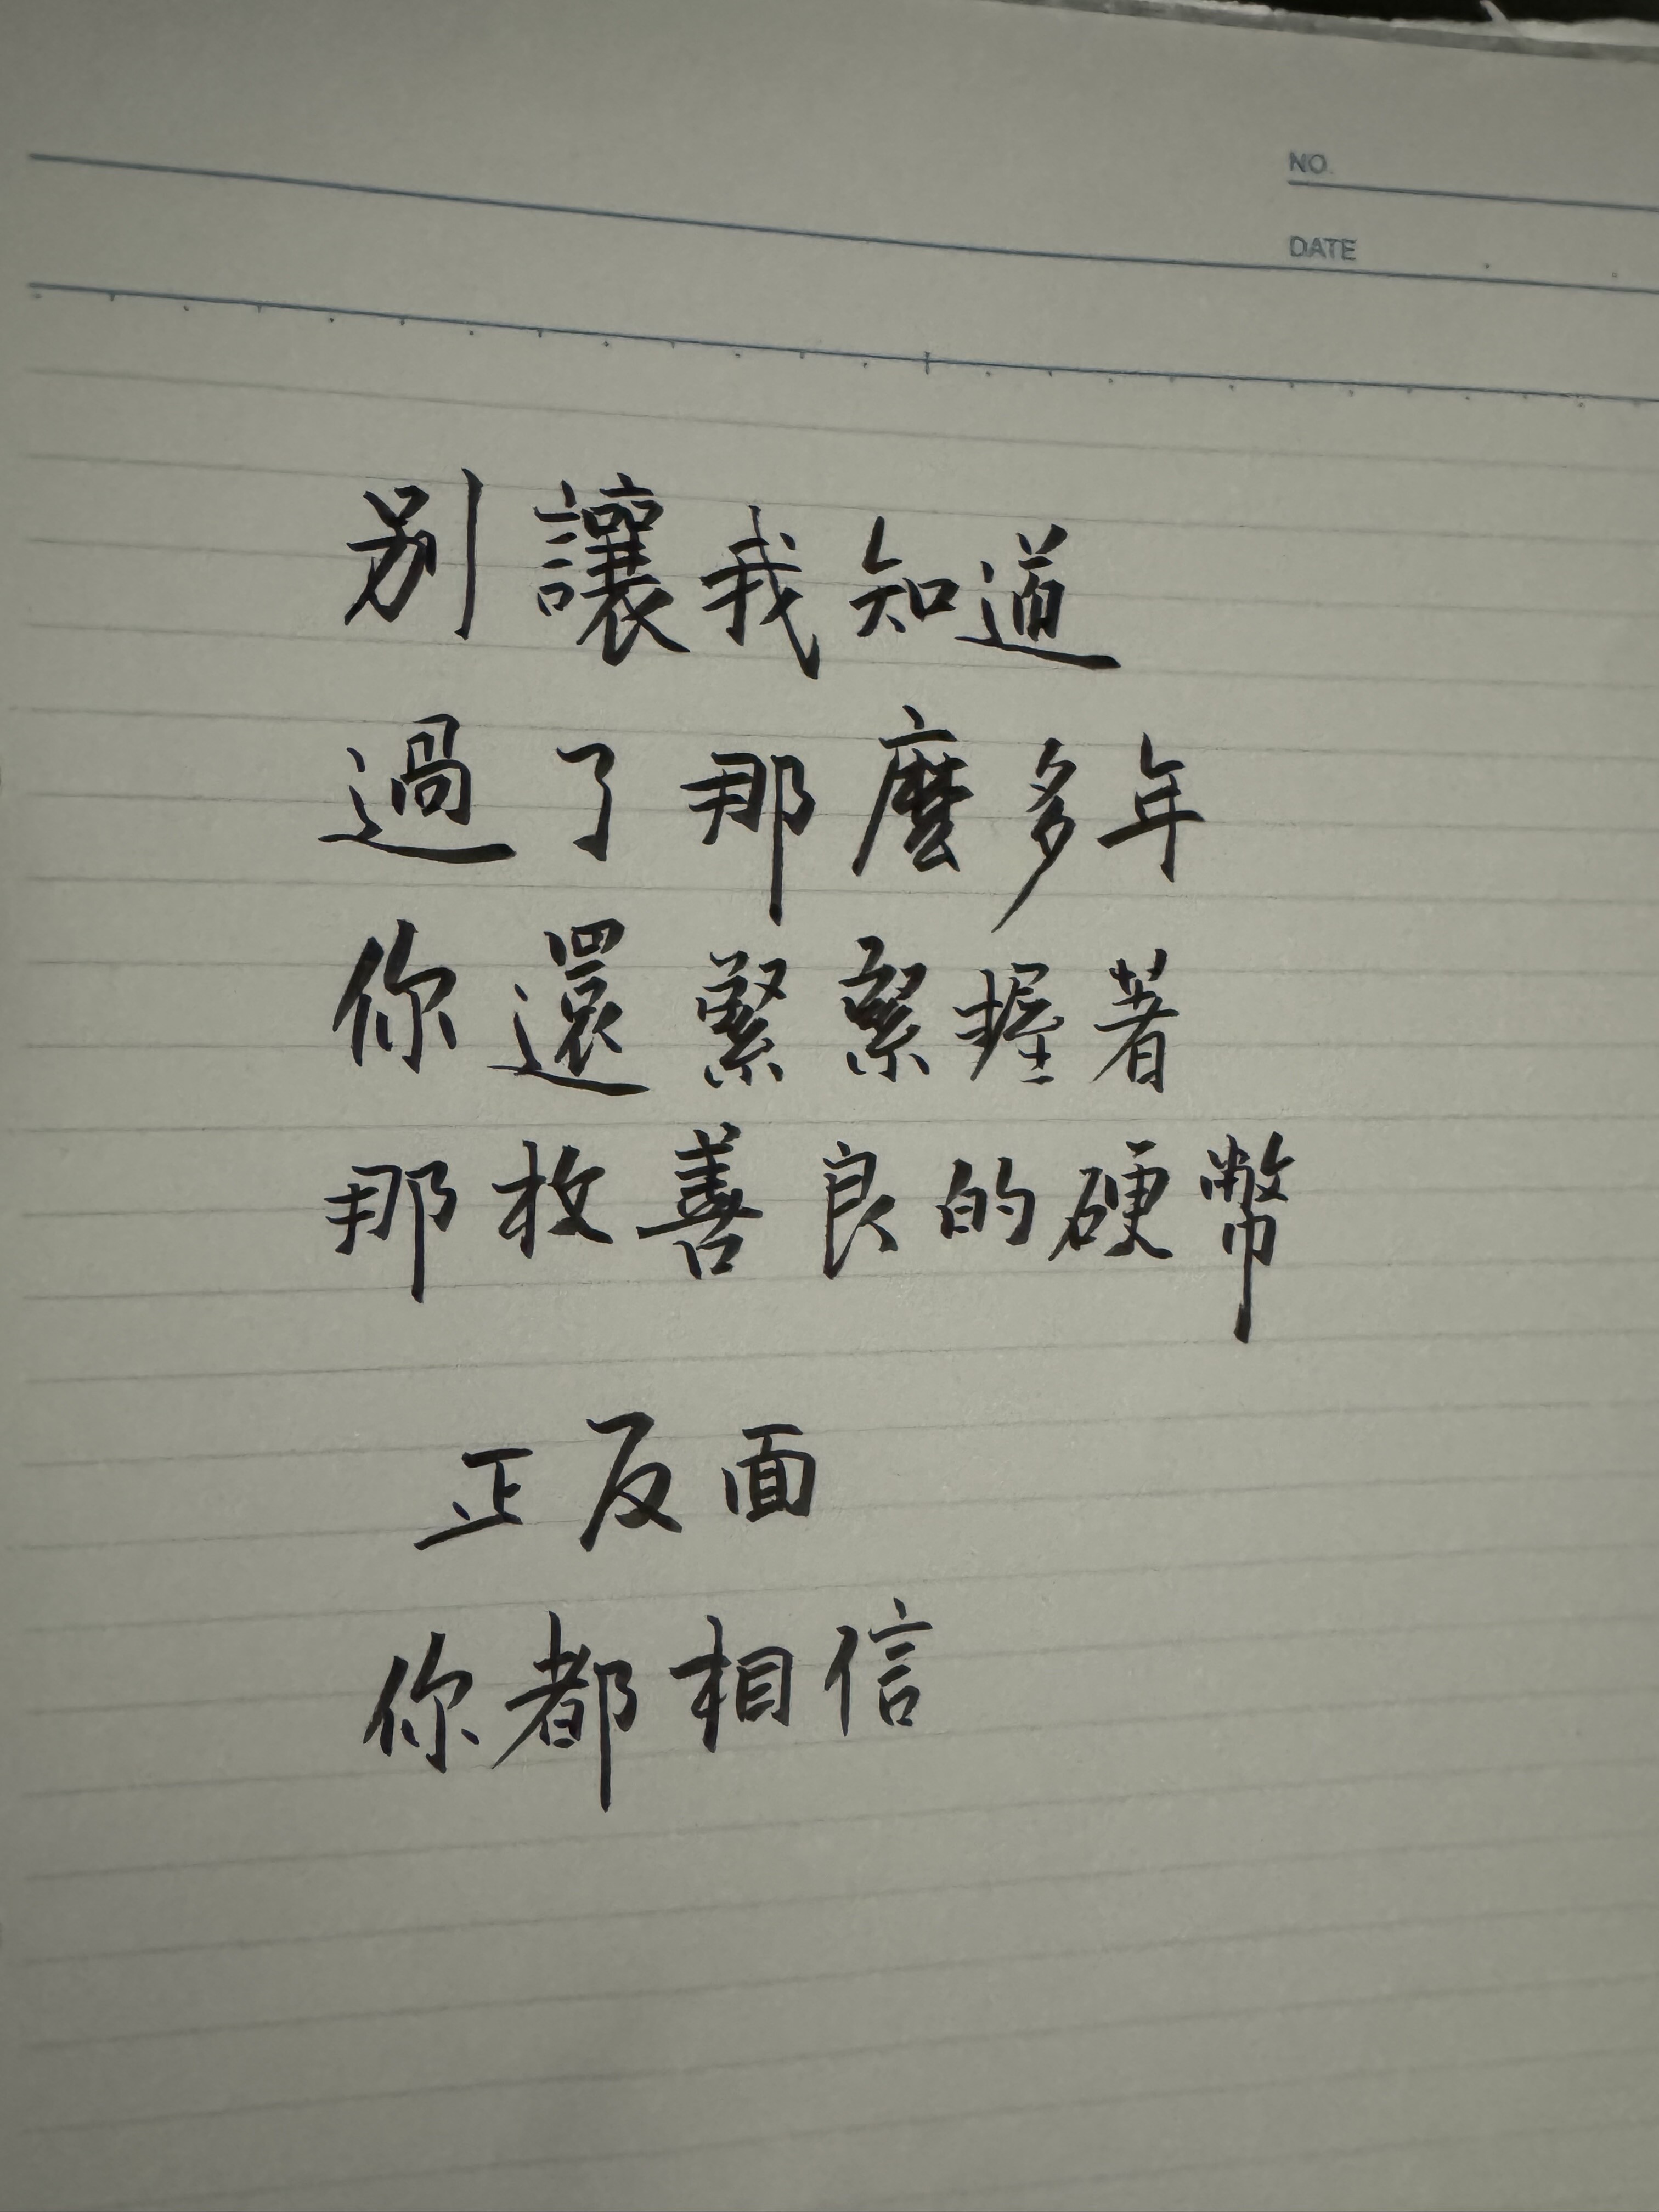 NO.
DATE
別讓我知道
過了那麼多年
你還緊緊握著
那枚善良的硬幣
正反面
你都相信